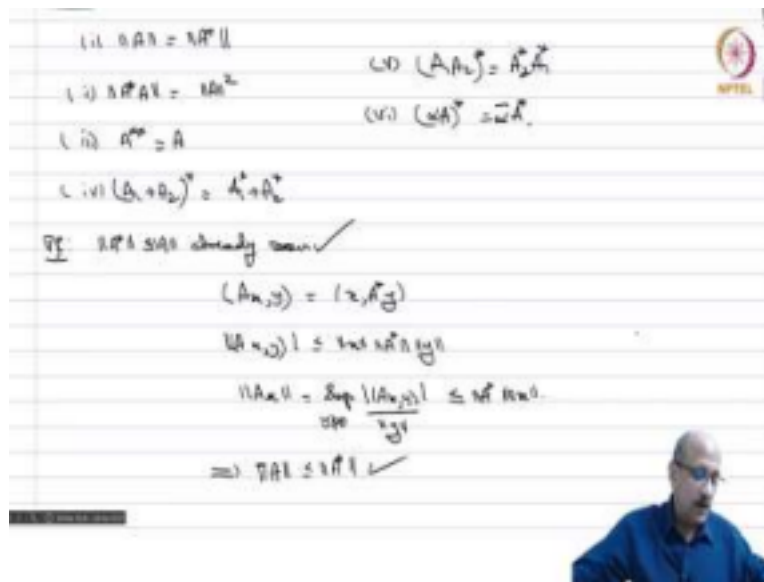 (i) ‖A‖ = ‖A*‖
(ii) ‖A*A‖ = ‖A‖²
(iii) A** = A
(iv) (A₁+A₂)* = A₁*+A₂*
(v) (A₁A₂)* = A₂*A₁*
(vi) (αA)* = ᾱA*.
NPTEL
Pf: ‖A*‖ ≤ ‖A‖ already seen ✓
(Ax,y) = (x,A*y)
|(Ax,y)| ≤ ‖x‖ ‖A*‖ ‖y‖
‖Ax‖ = Sup y≠0 |(Ax,y)| / ‖y‖ ≤ ‖A*‖ ‖x‖.
⇒ ‖A‖ ≤ ‖A*‖ ✓